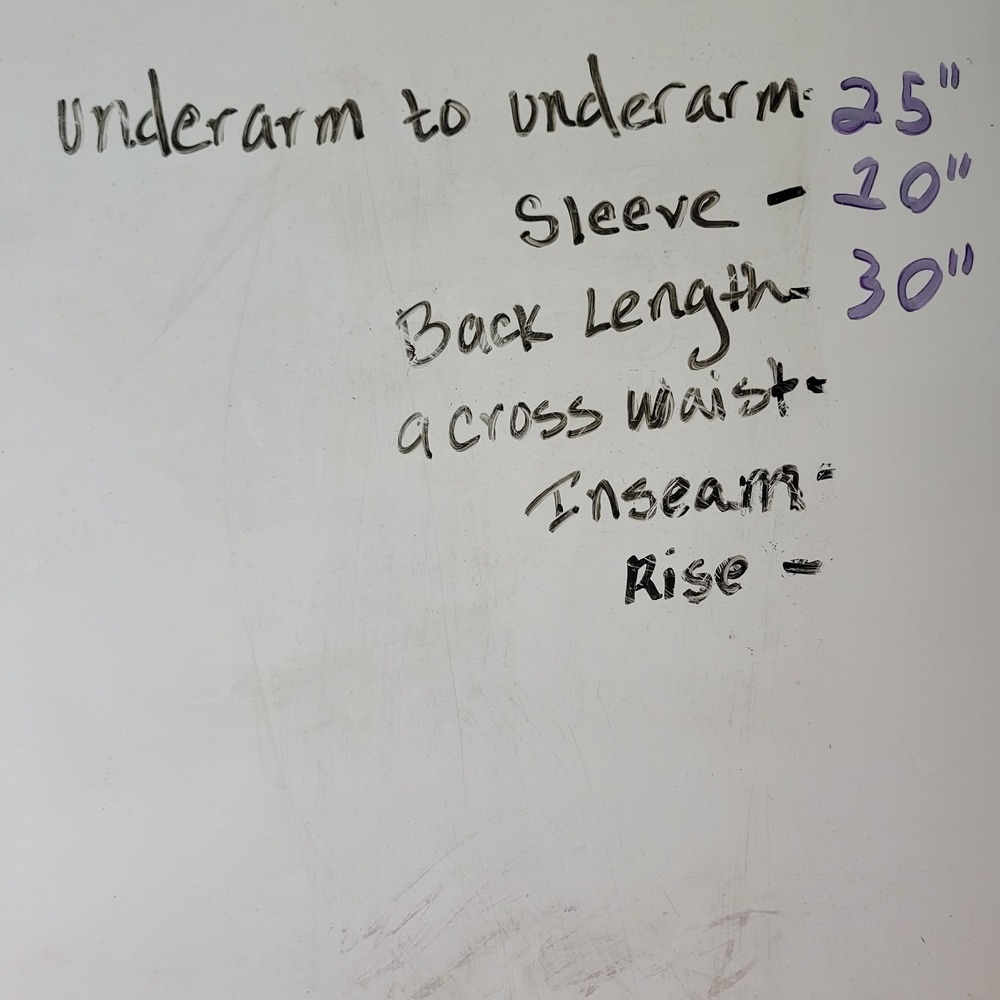 underarm to underarm- 25"
Sleeve - 10"
Back Length- 30"
across waist-
Inseam-
Rise -